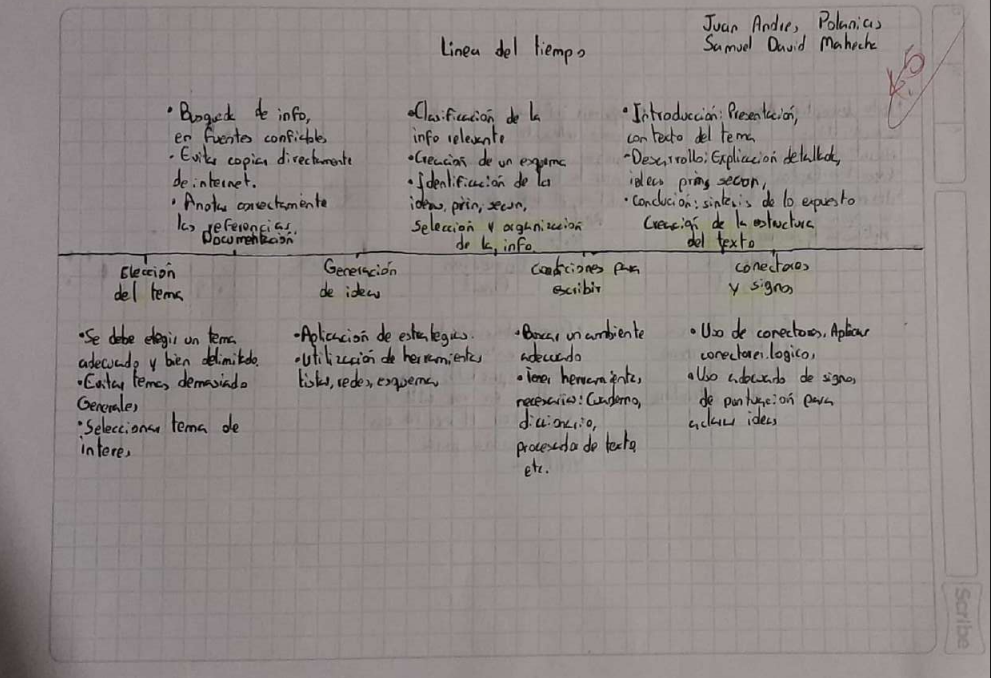 Linea del tiempo
Juan Andres Polanias
Samuel David Maheche
4.5
• Busqueda de info,
en fuentes confiables
• Evitar copiar directamente
de internet.
• Anotar correctamente
las referencias.
Documentación
• Clasificación de la
info relevante
• Creación de un esquema
• Identificación de la
ideas, prin, secun,
Selección y organización
de la info
• Introducción: Presentación,
contexto del tema
• Desarrollo: Explicación detallada,
ideas prin, secun,
• Conclución: sintesis de lo expuesto
Creación de la estructura
del texto
Elección
del tema
Generación
de ideas
Condiciones para
escribir
conectores
y signos
• Se debe elegir un tema
adecuado y bien delimitado.
• Evitar temas demasiado
Generales
• Seleccionar tema de
interes
• Aplicación de estrategias.
• Utilización de herramientas
listas, redes, esquemas
• Buscar un ambiente
adecuado
• Tener herramientas
necesarias: Cuaderno,
diccionario,
procesador de texto
etc.
• Uso de conectores. Aplicar
conectores logico,
• Uso adecuado de signos
de puntuación para
aclarar ideas
Scribe